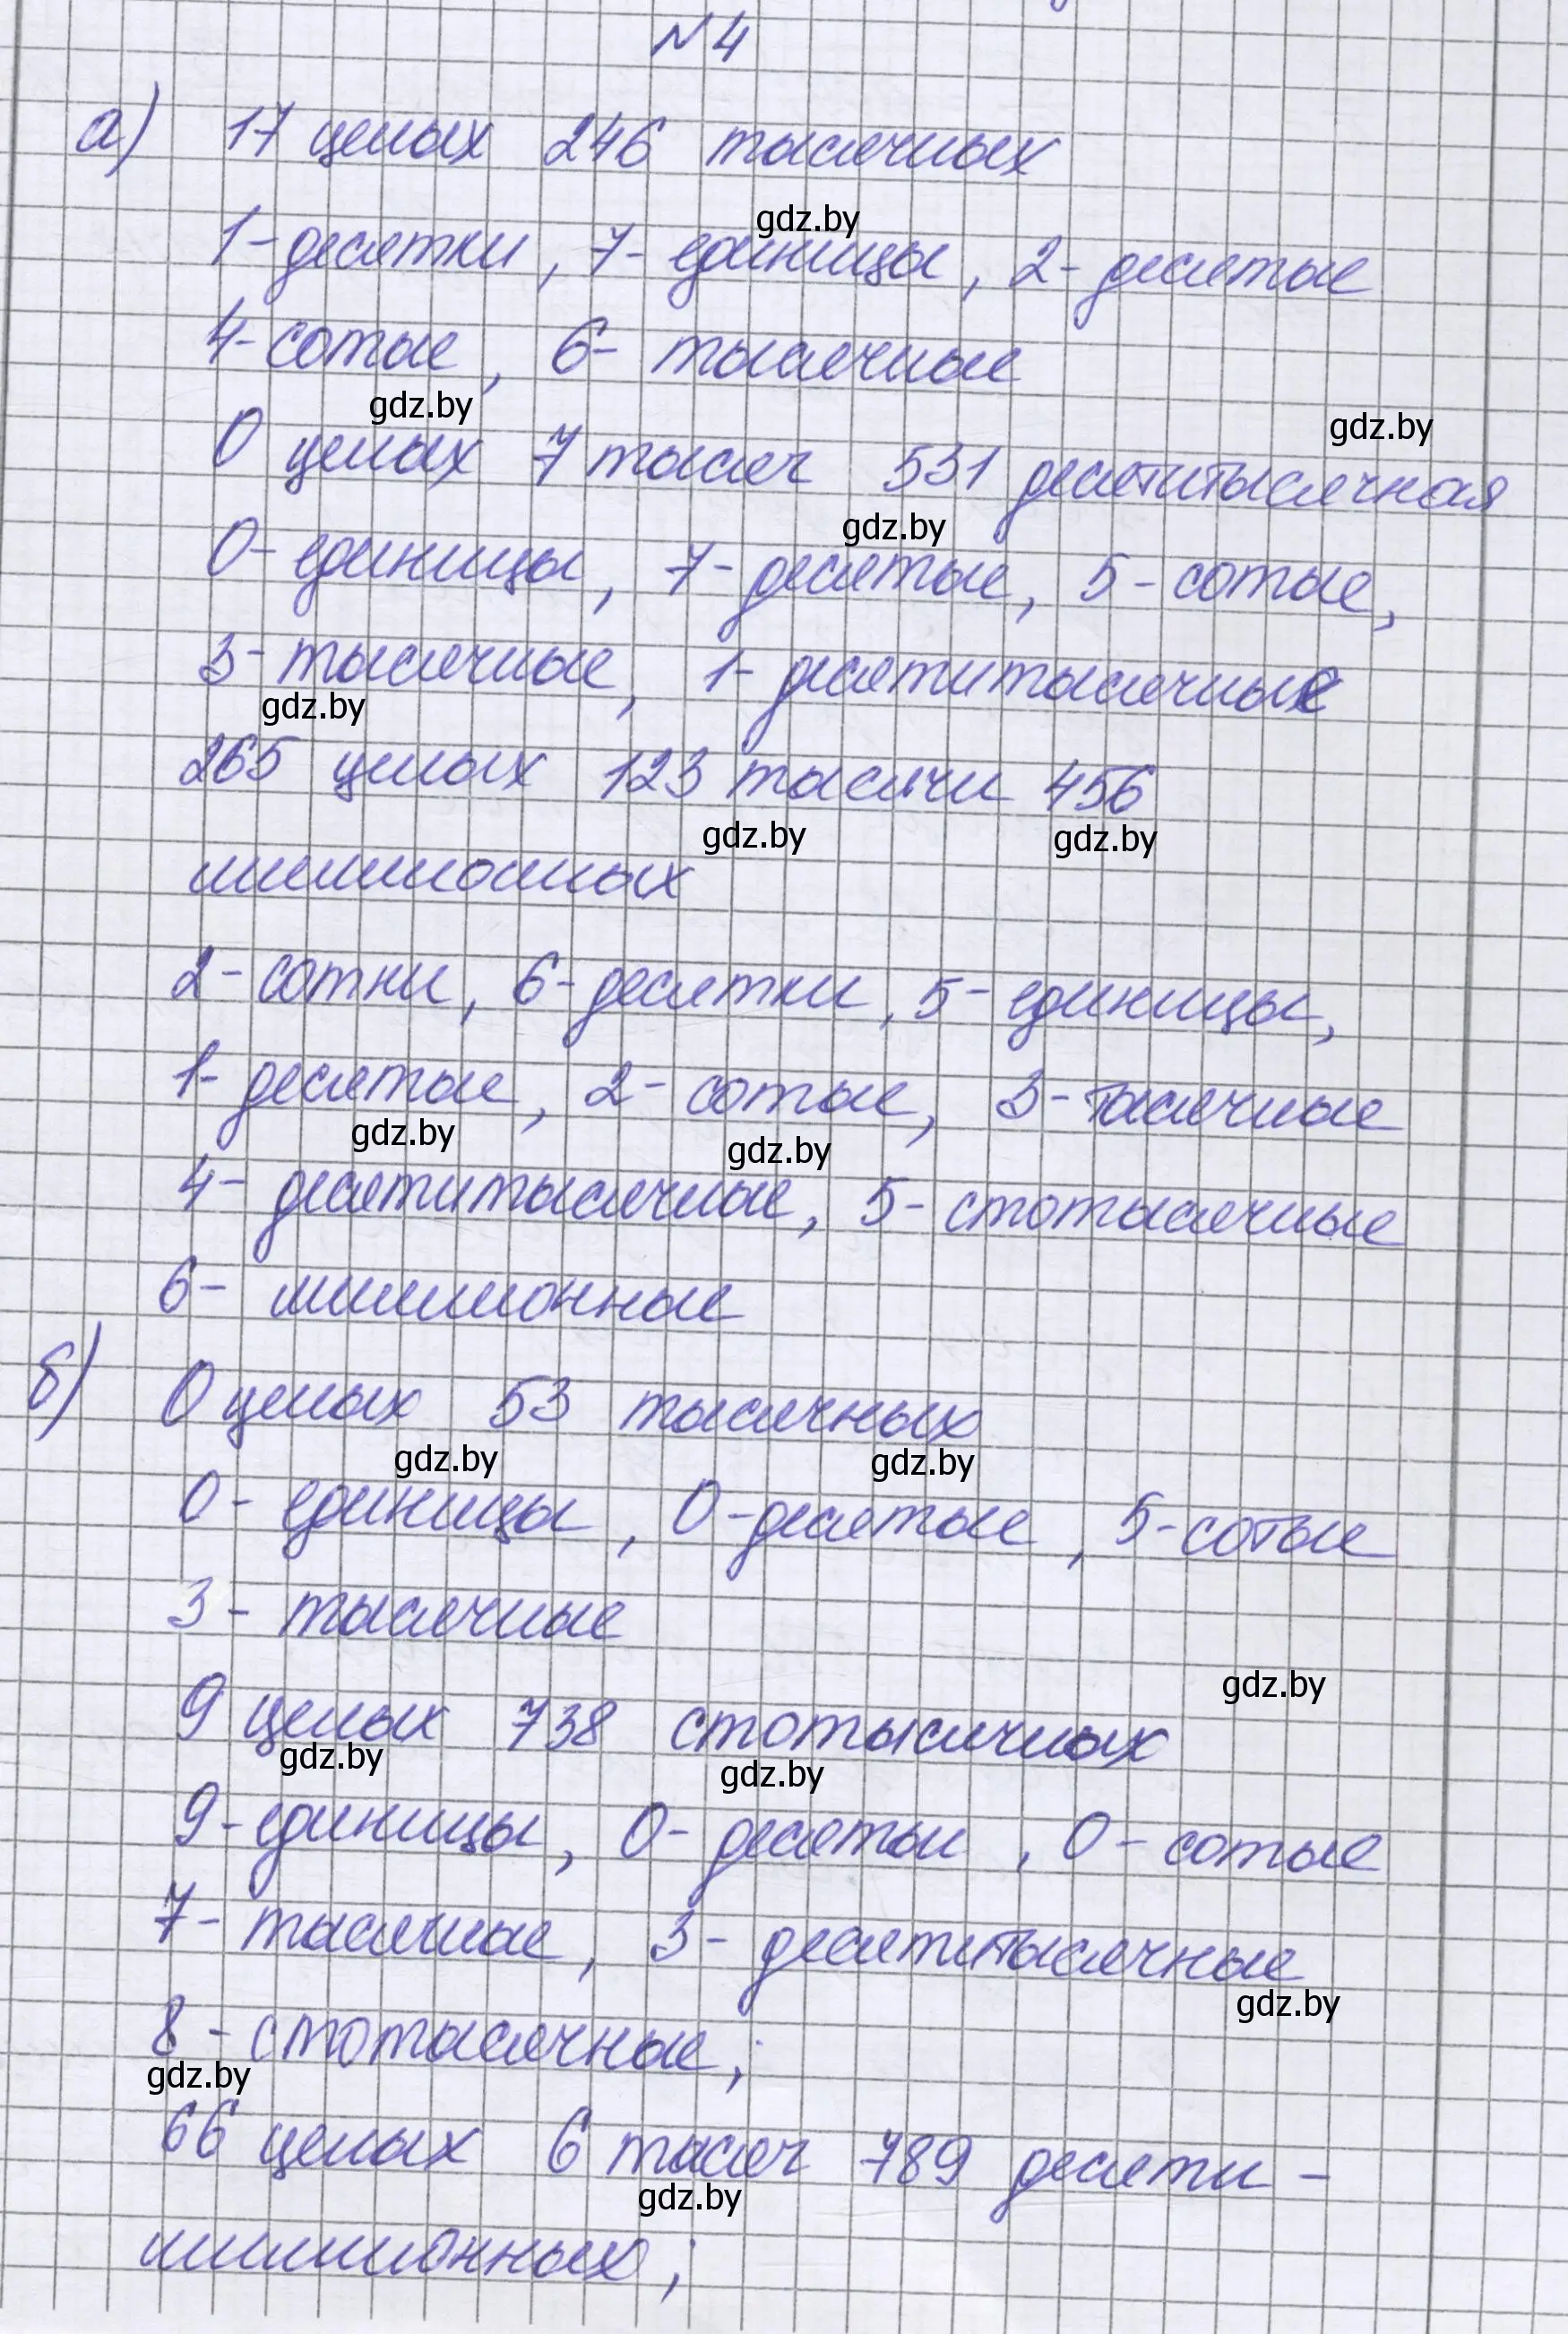 №4
а) 17 целых 246 тысячных
gdz.by
1-десятки, 7- единицы, 2- десятые
4-сотые, 6- тысячные
gdz.by
gdz.by
0 целых 7 тысяч 531 десятитысячная
gdz.by
0- единицы, 7-десятые, 5-сотые,
3-тысячные, 1- десятитысячные
gdz.by
265 целых 123 тысячи 456
gdz.by gdz.by
миллионных
2-сотни, 6-десятки, 5-единицы,
1- десятые, 2- сотые, 3-тысячные
gdz.by gdz.by
4- десятитысячные, 5-стотысячные
6- миллионные
б) 0 целых 53 тысячных
gdz.by gdz.by
0- единицы, 0-десятые, 5-сотые
3- тысячные
gdz.by
9 целых 738 стотысячных
gdz.by gdz.by
9-единицы, 0- десятые, 0-сотые
7- тысячные, 3- десятитысячные
gdz.by
8-стотысячные;
gdz.by
66 целых 6 тысяч 789 десяти-
gdz.by
миллионных;